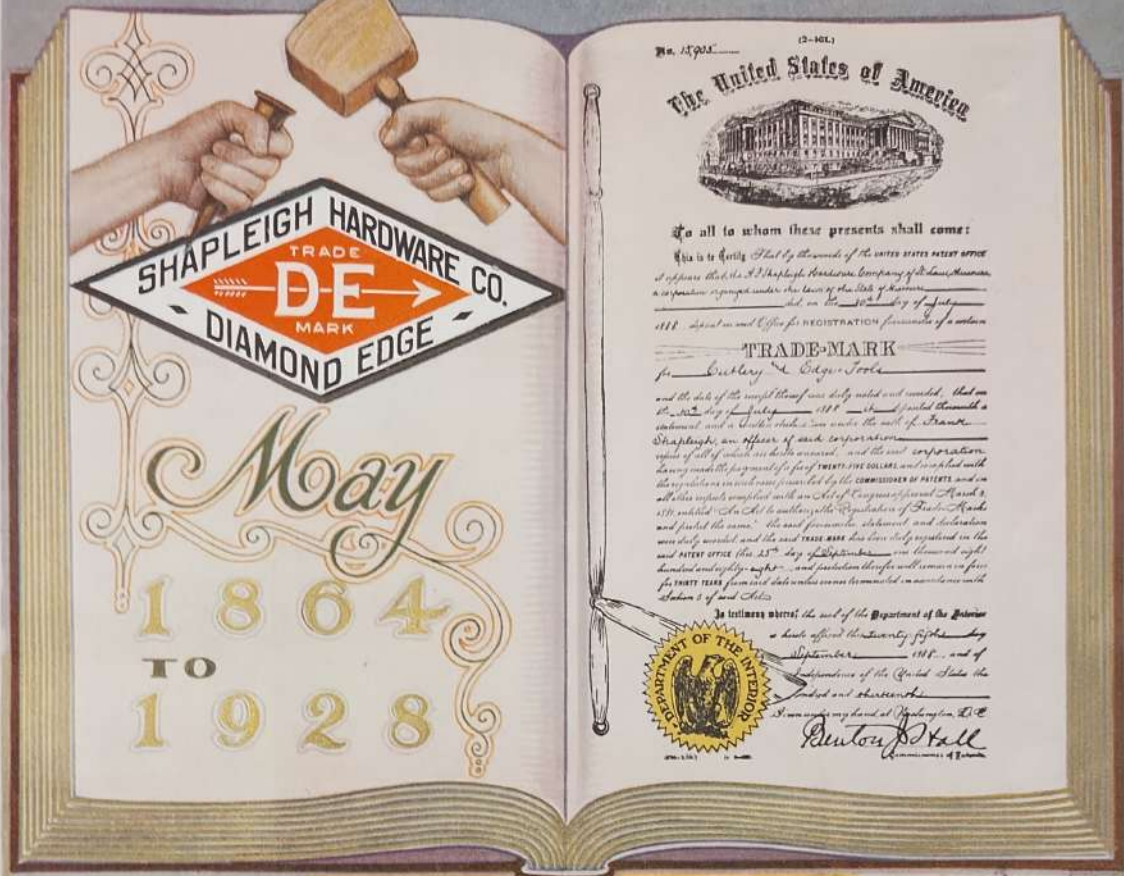 SHAPLEIGH HARDWARE CO.
TRADE
D-E
MARK
DIAMOND EDGE
May
1864
TO
1928
(2-161.)
No. 15,905
The United States of America
To all to whom these presents shall come:
This is to Certify That by the records of the UNITED STATES PATENT OFFICE
it appears that the A. F. Shapleigh Hardware Company of St. Louis, Missouri
a corporation organized under the laws of the State of Missouri
did, on the 30th day of July
1888 deposit in said Office for REGISTRATION facsimiles of a certain
TRADE-MARK
for Cutlery and Edge-Tools
and the date of the receipt thereof was duly noted and recorded, that on
the 30th day of July 1888 it deposited therewith a
statement, and a written declaration under the oath of Frank
Shapleigh, an officer of said corporation
copies of all of which are hereto annexed, and the said corporation
having made the payment of a fee of TWENTY-FIVE DOLLARS, and complied with
the regulations in such cases prescribed by the COMMISSIONER OF PATENTS and in
all other respects complied with an Act of Congress approved March 3,
1881, entitled "An Act to authorize the Registration of Trade-Marks
and protect the same," the said facsimiles, statement and declaration
were duly recorded, and the said TRADE-MARK has been duly registered in the
said PATENT OFFICE this 25th day of September one thousand eight
hundred and eighty-eight, and protection therefor will remain in force
for THIRTY YEARS from said date unless sooner terminated in accordance with
Section 5 of said Act.
In testimony whereof the seal of the Department of the Interior
is hereto affixed this twenty-fifth day
September 1888, and of
Independence of the United States the
hundred and thirteenth
Given under my hand at Washington, D. C.
Benton J. Hall
Commissioner of Patents
DEPARTMENT OF THE INTERIOR